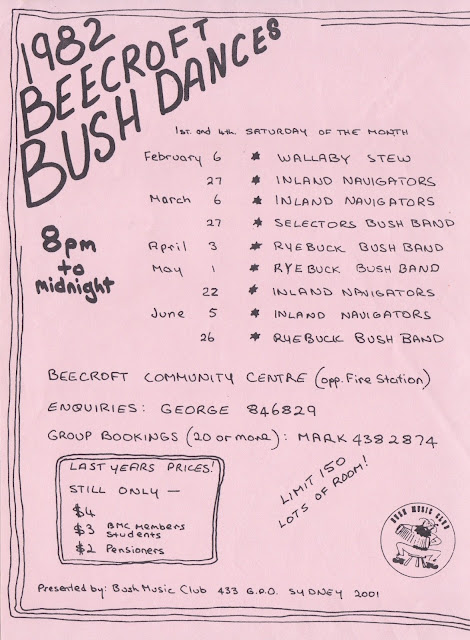 1982
BEECROFT
BUSH DANCES
1st. and 4th. SATURDAY OF THE MONTH
February 6 * WALLABY STEW
27 * INLAND NAVIGATORS
March 6 * INLAND NAVIGATORS
27 * SELECTORS BUSH BAND
April 3 * RYEBUCK BUSH BAND
May 1 * RYEBUCK BUSH BAND
22 * INLAND NAVIGATORS
June 5 * INLAND NAVIGATORS
26 * RYEBUCK BUSH BAND
8pm
to
midnight
BEECROFT COMMUNITY CENTRE (opp. Fire Station)
ENQUIRIES: GEORGE 846829
GROUP BOOKINGS (20 or more): MARK 4382874
LAST YEARS PRICES!
STILL ONLY —
$4
$3 BMC Members
Students
$2 Pensioners
LIMIT 150
LOTS OF ROOM!
BUSH MUSIC CLUB
Presented by: Bush Music Club 433 G.P.O. SYDNEY 2001